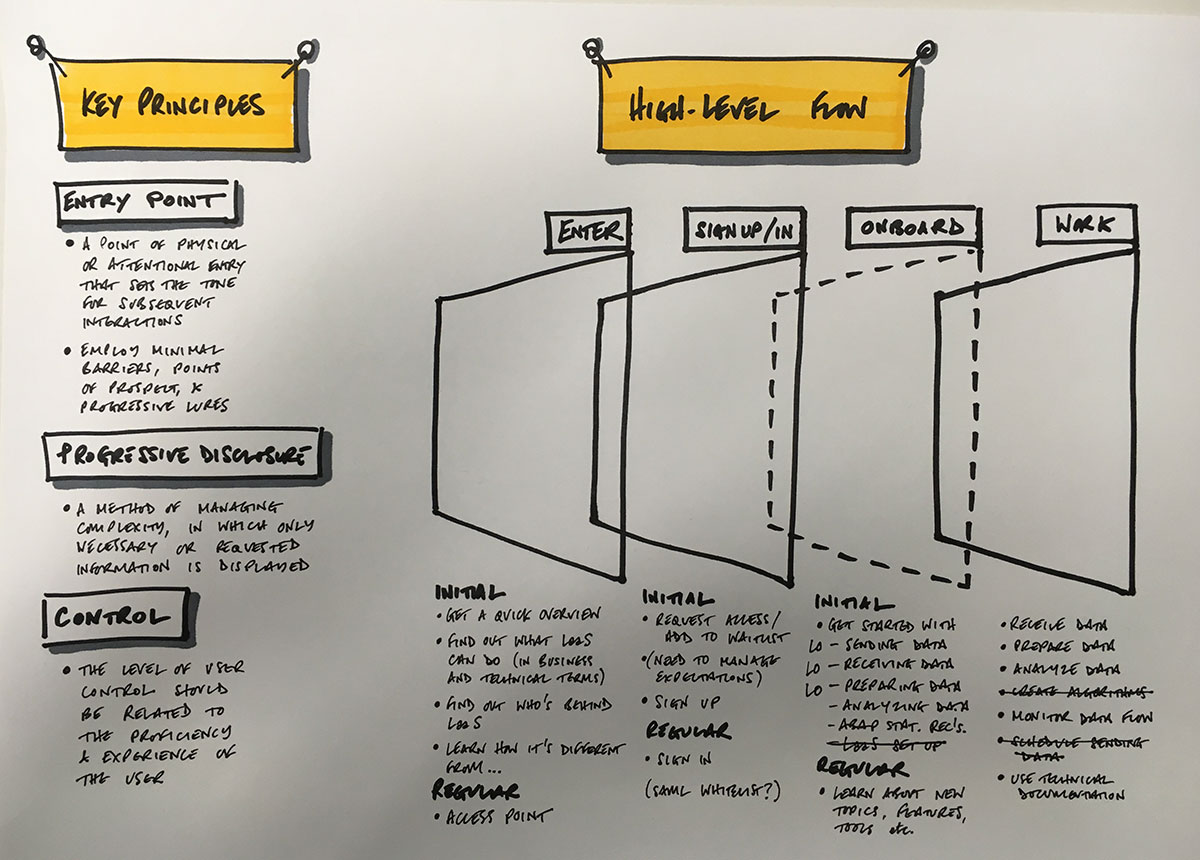 KEY PRINCIPLES
ENTRY POINT
• A POINT OF PHYSICAL
OR ATTENTIONAL ENTRY
THAT SETS THE TONE
FOR SUBSEQUENT
INTERACTIONS
• EMPLOY MINIMAL
BARRIERS, POINTS
OF PROSPECT, &
PROGRESSIVE LURES
PROGRESSIVE DISCLOSURE
• A METHOD OF MANAGING
COMPLEXITY, IN WHICH ONLY
NECESSARY OR REQUESTED
INFORMATION IS DISPLAYED
CONTROL
• THE LEVEL OF USER
CONTROL SHOULD
BE RELATED TO
THE PROFICIENCY
& EXPERIENCE OF
THE USER
HIGH-LEVEL FLOW
ENTER
SIGN UP/IN
ONBOARD
WORK
INITIAL
• GET A QUICK OVERVIEW
• FIND OUT WHAT
CAN DO (IN BUSINESS
AND TECHNICAL TERMS)
• FIND OUT WHO'S BEHIND
• LEARN HOW IT'S DIFFERENT
FROM...
REGULAR
• ACCESS POINT
INITIAL
• REQUEST ACCESS/
ADD TO WAITLIST
• (NEED TO MANAGE
EXPECTATIONS)
• SIGN UP
REGULAR
• SIGN IN
(SAML WHITELIST?)
INITIAL
• GET STARTED WITH
LO – SENDING DATA
LO – RECEIVING DATA
LO – PREPARING DATA
– ANALYZING DATA
– ABAP STAT. REC'S.
– SET UP
REGULAR
• LEARN ABOUT NEW
TOPICS, FEATURES,
TOOLS etc.
• RECEIVE DATA
• PREPARE DATA
• ANALYZE DATA
• CREATE ALGORITHMS
• MONITOR DATA FLOW
• SCHEDULE SENDING
DATA
• USE TECHNICAL
DOCUMENTATION